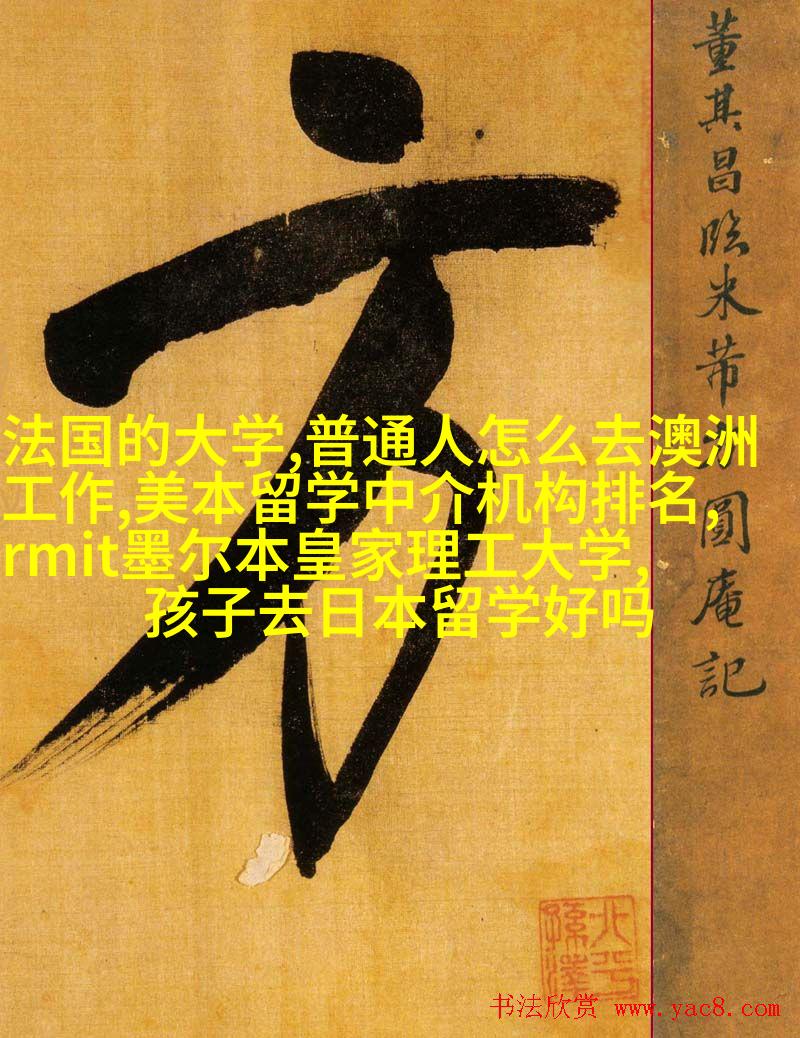 董其昌臨米芾方圓庵記
方
法国的大学,普通人怎么去澳洲
工作,美本留学中介机构排名,
rmit墨尔本皇家理工大学,
孩子去日本留学好吗
书法欣赏 www.yac8.com